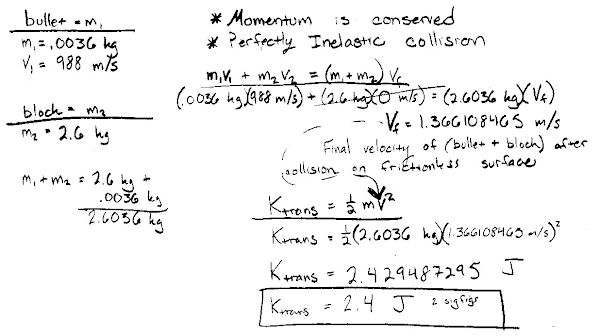 bullet = m₁
m₁ = .0036 kg
V₁ = 988 m/s
block = m₂
m₂ = 2.6 kg
m₁ + m₂ = 2.6 kg +
.0036 kg
2.6036 kg
* Momentum is conserved
* Perfectly Inelastic collision
m₁V₁ + m₂V₂ = (m₁+m₂) V_f
(.0036 kg)(988 m/s) + (2.6 kg)(0 m/s) = (2.6036 kg)(V_f)
V_f = 1.366108465 m/s
Final velocity of (bullet + block) after
collision on frictionless surface
K_trans = ½ mV²
K_trans = ½(2.6036 kg)(1.366108465 m/s)²
K_trans = 2.429487295 J
K_trans = 2.4 J 2 sigfigs